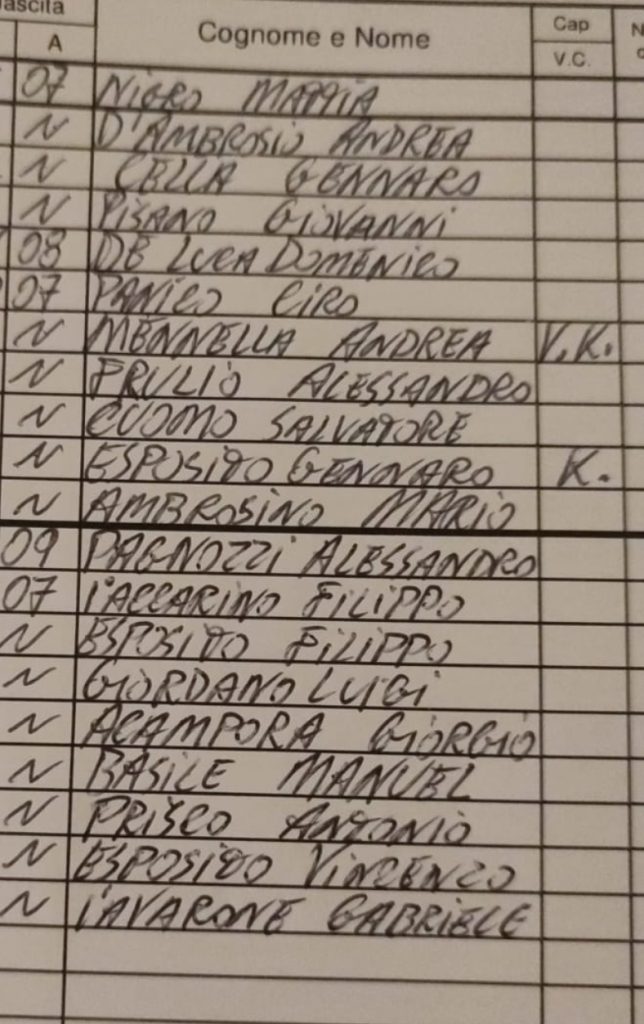 ascita Cap
A Cognome e Nome V.C.
07 NIGRO MATTIA
N D'AMBROSIO ANDREA
N CELLA GENNARO
N PISANO GIOVANNI
08 DE LUCA DOMENICO
07 PANICO CIRO
N MENNELLA ANDREA V.K.
N PRULIO ALESSANDRO
N CUOMO SALVATORE
N ESPOSITO GENNARO K.
N AMBROSINO MARIO
09 PAGNOZZI ALESSANDRO
07 IACCARINO FILIPPO
N ESPOSITO FILIPPO
N GIORDANO LUIGI
N ACAMPORA GIORGIO
N BASILE MANUEL
N PRISCO ANTONIO
N ESPOSITO VINCENZO
N IAVARONE GABRIELE